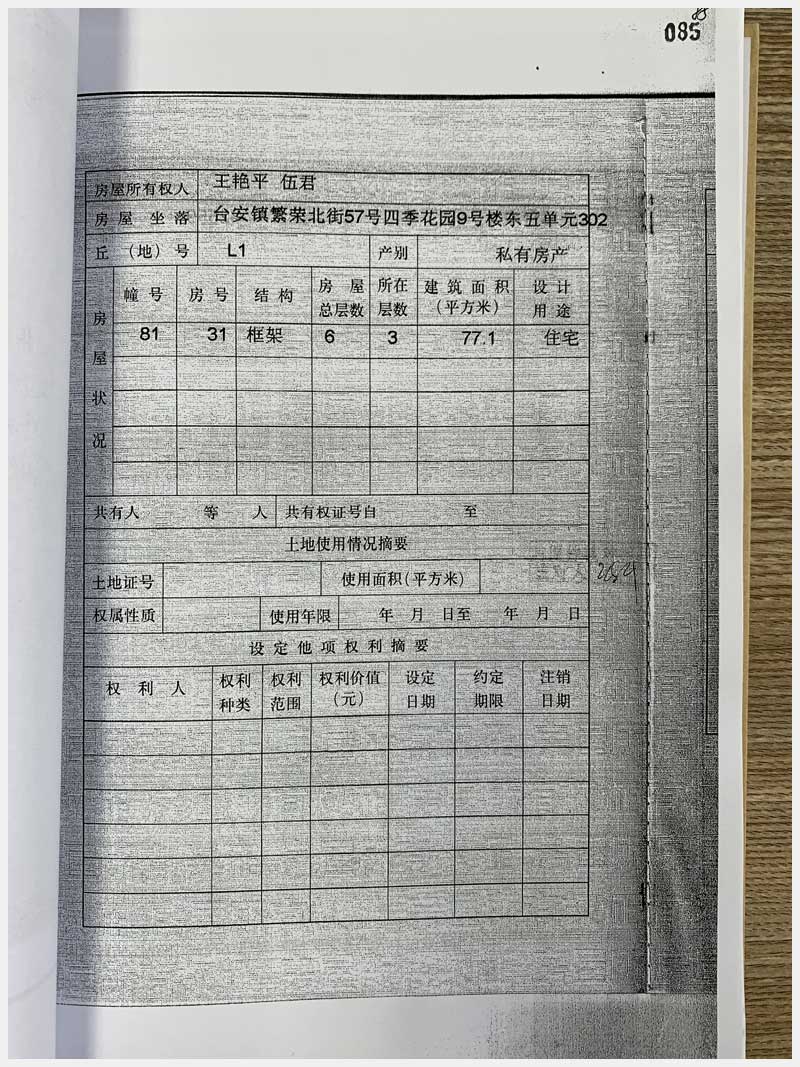 085
房屋所有权人 王艳平 伍君
房屋坐落 台安镇繁荣北街57号四季花园9号楼东五单元302
丘（地）号 L1 产别 私有房产
房屋状况
幢号 房号 结构 房屋总层数 所在层数 建筑面积（平方米） 设计用途
81 31 框架 6 3 77.1 住宅
共有人 等 人 共有权证号自 至
土地使用情况摘要
土地证号 使用面积（平方米）
权属性质 使用年限 年 月 日至 年 月 日
设定他项权利摘要
权利人 权利种类 权利范围 权利价值（元） 设定日期 约定期限 注销日期